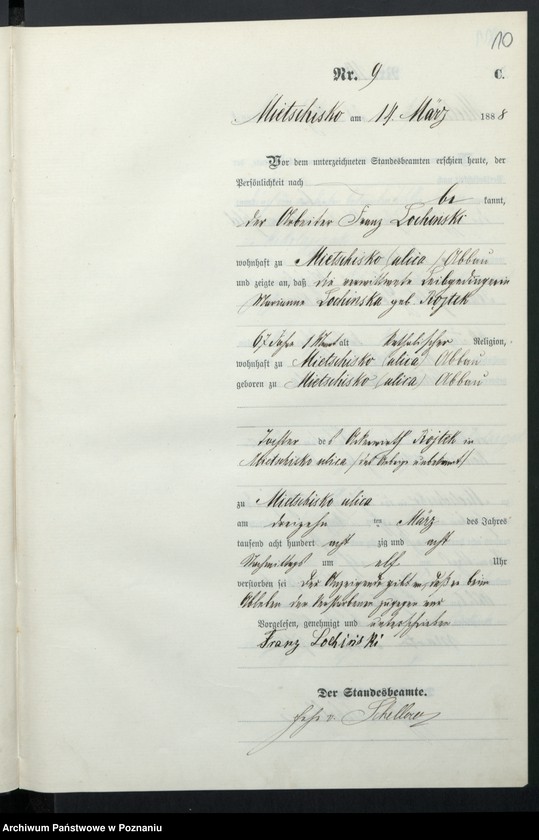 10
Nr. 9
C.
Mietschisko am 14. März 1888
Vor dem unterzeichneten Standesbeamten erschien heute, der
Persönlichkeit nach
be kannt,
der Arbeiter Franz Lochinski
wohnhaft zu Mietschisko (ulica) Abbau
und zeigte an, daß die verwittwete Leibgedingerin
Marianne Lochinska geb. Kojtek
67 Jahr 1 Monat alt katholischer Religion,
wohnhaft zu Mietschisko (ulica) Abbau
geboren zu Mietschisko (ulica) Abbau
Tochter des Kojtek in
Mietschisko ulica (des Vaters unbekannt)
zu Mietschisko ulica
am dreizehn ten März des Jahres
tausend acht hundert acht zig und acht
Nachmittags um elf Uhr
verstorben sei Der Anzeigende gibt an, daß er beim
Ableben der Verstorbenen zugegen war
Vorgelesen, genehmigt und unterschrieben
Franz Lochiński
Der Standesbeamte.
Archiwum Państwowe w Poznaniu